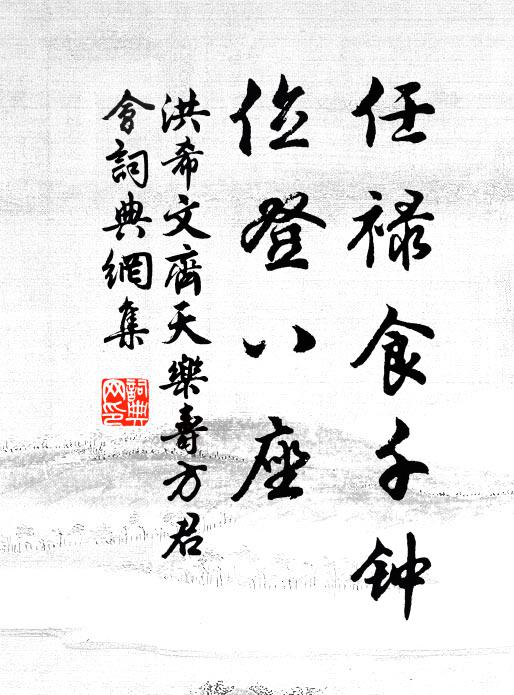 任祿食千钟
位登八座
洪希文齊天樂壽方君
會詞典網集
詞典
网印